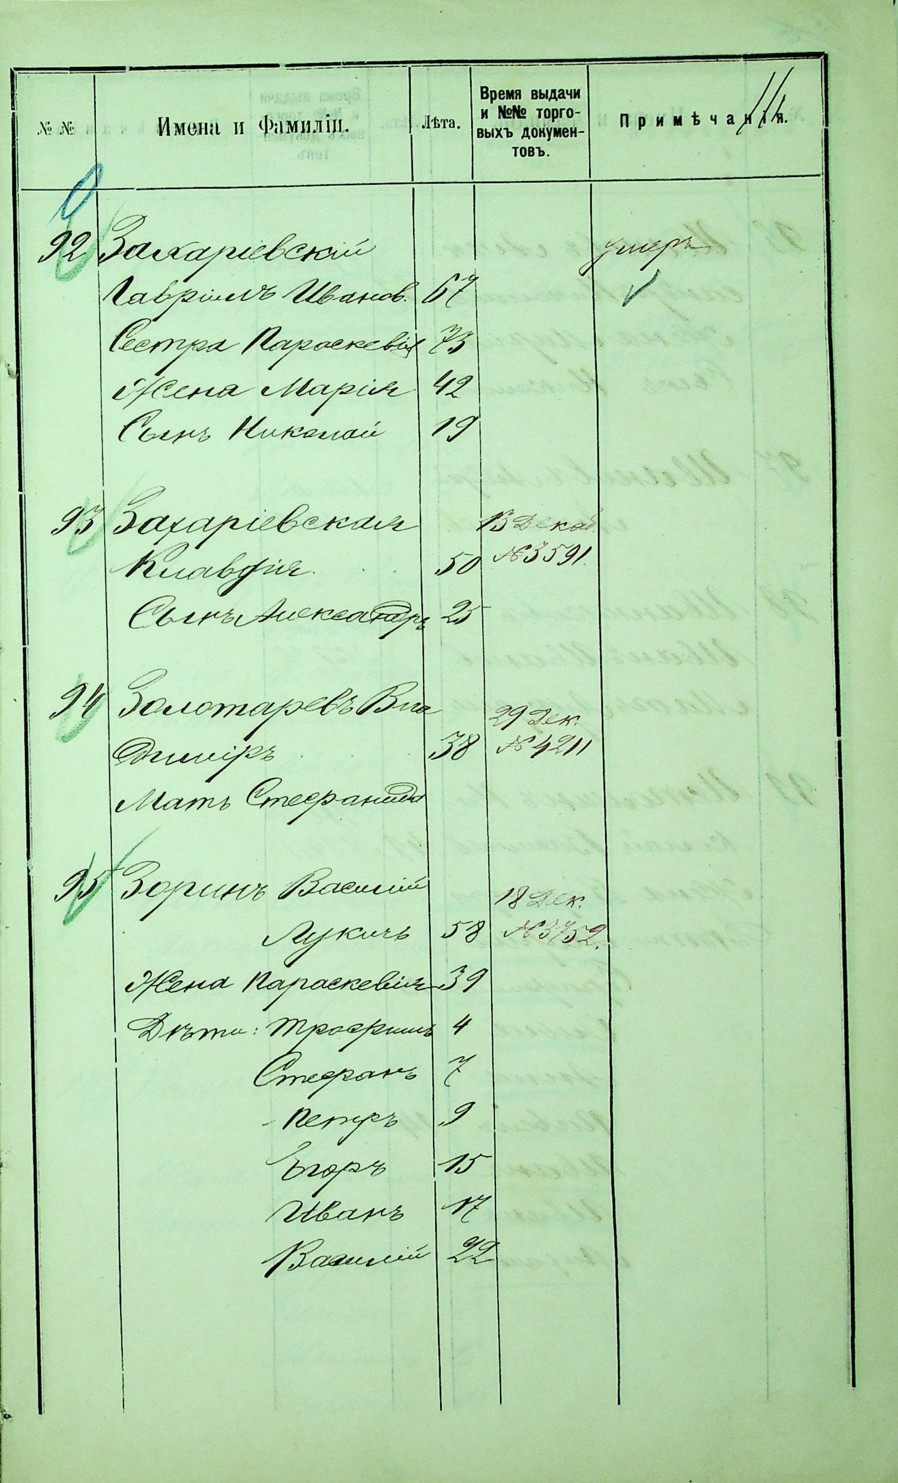 № №
Имена и Фамиліи.
Лѣта.
Время выдачи
и №№ торго-
выхъ докумен-
товъ.
Примѣчанія.
92 Захаріевскій умеръ
Гавріилъ Иванов. 67
Сестра Параскевія 73
Жена Марія 42
Сынъ Николай 19
93 Захаріевская 13 Декаб.
Клавдія 50 №3591.
Сынъ Александръ 25
94 Золотаревъ Вла 29 Дек.
димиръ 38 №4211
Мать Стефанида
95 Зоринъ Василій 18 Дек.
Лукичъ 58 №3752.
Жена Параскевія 39
Дѣти: Трофимъ 4
Стефанъ 7
Петръ 9
Егоръ 15
Иванъ 17
Василій 22